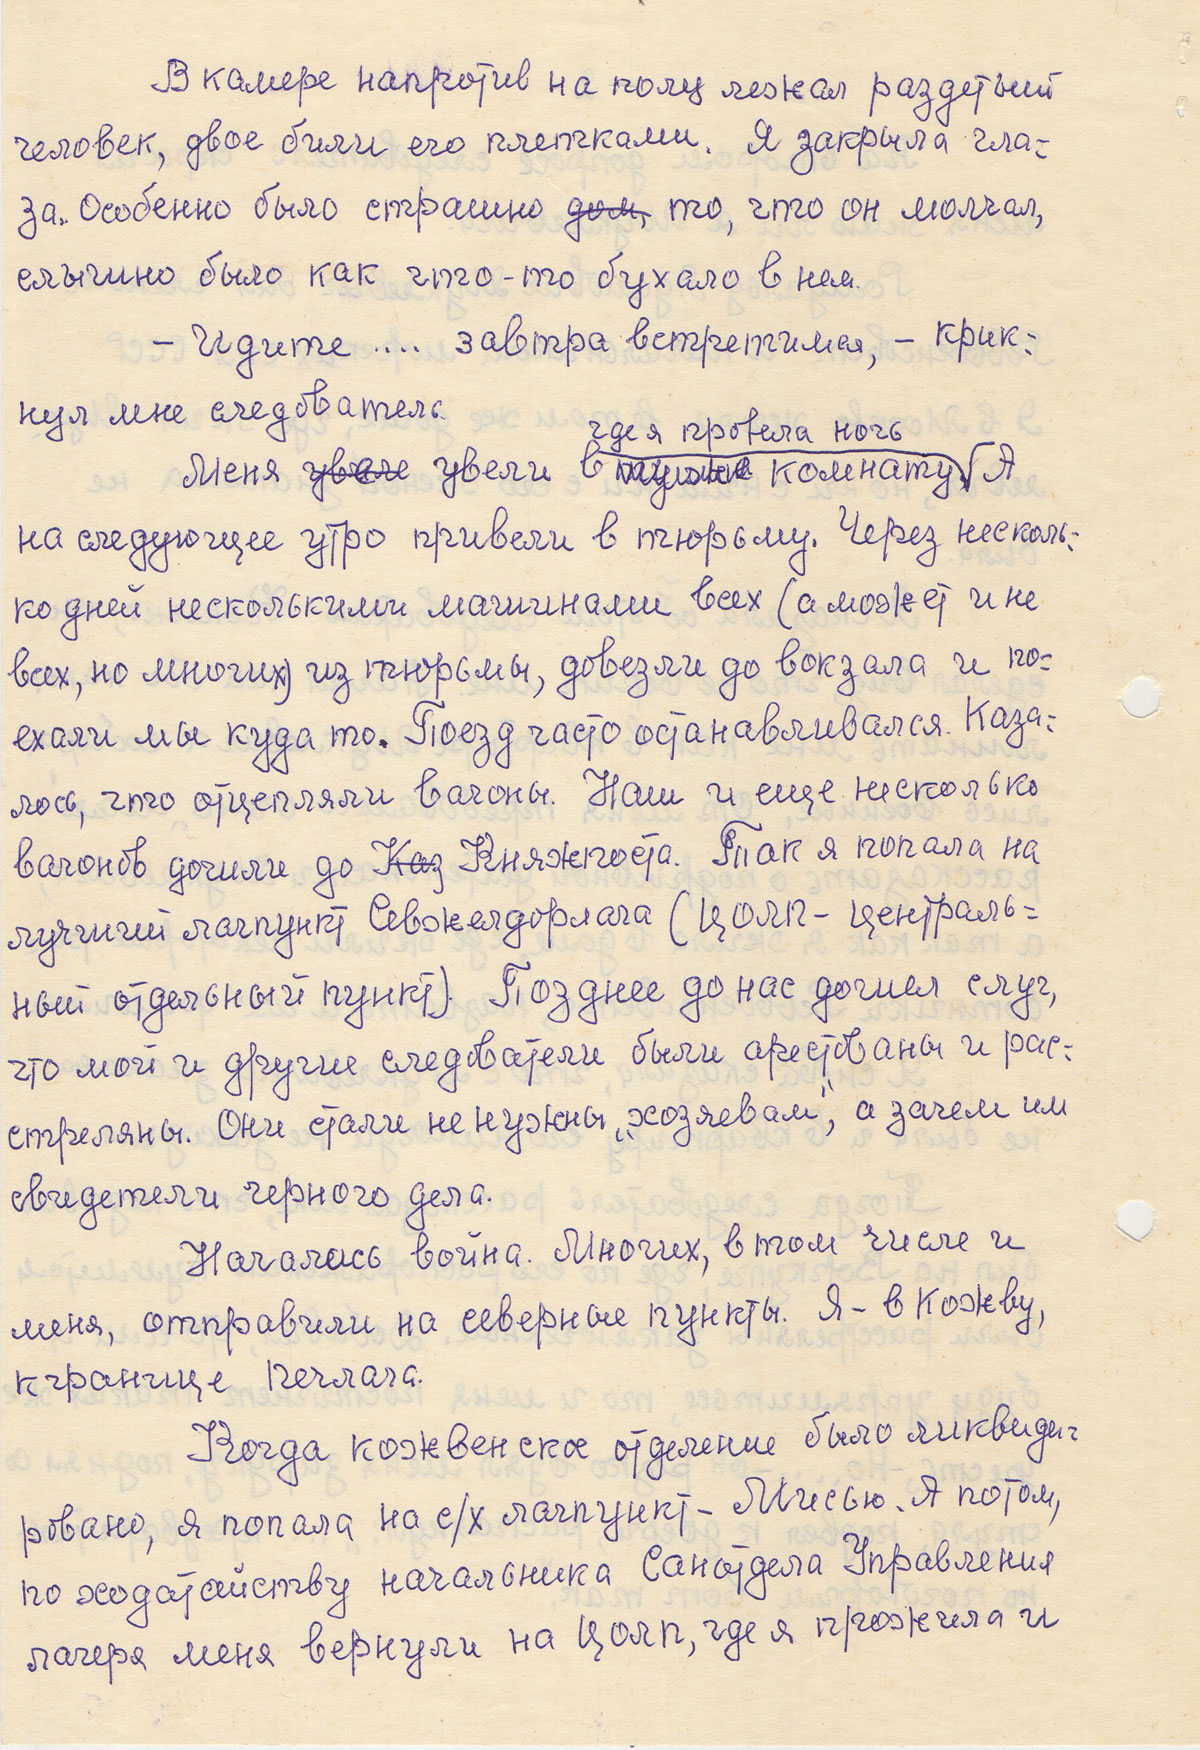 В камере напротив на полу лежал раздетый
человек, двое били его плетками. Я закрыла гла=
за. Особенно было страшно дом, то, что он молчал,
слышно было как что-то бухало в нем.
– Идите .... завтра встретимся, – крик=
нул мне следователь.
где я провела ночь
Меня увели в комнату. А
на следующее утро привели в тюрьму. Через несколь=
ко дней несколькими машинами всех (а может и не
всех, но многих) из тюрьмы, довезли до вокзала и по=
ехали мы куда то. Поезд часто останавливался. Каза=
лось, что отцепляли вагоны. Наш и еще несколько
вагонов дошли до Каз Княжпоста. Так я попала на
лучший лагпункт Севжелдорлага (ЦОЛП – централь=
ный отдельный пункт). Позднее до нас дошел слух,
что мой и другие следователи были арестованы и рас=
стреляны. Они стали не нужны „хозяевам", а зачем им
свидетели черного дела.
Началась война. Многих, в том числе и
меня, отправили на северные пункты. Я – в Кожву,
к границе Печлага.
Когда кожвенское отделение было ликвиди=
ровано, я попала на с/х лагпункт – Мисью. А потом,
по ходатайству начальника Санотдела Управления
лагеря меня вернули на ЦОЛП, где я прожила и